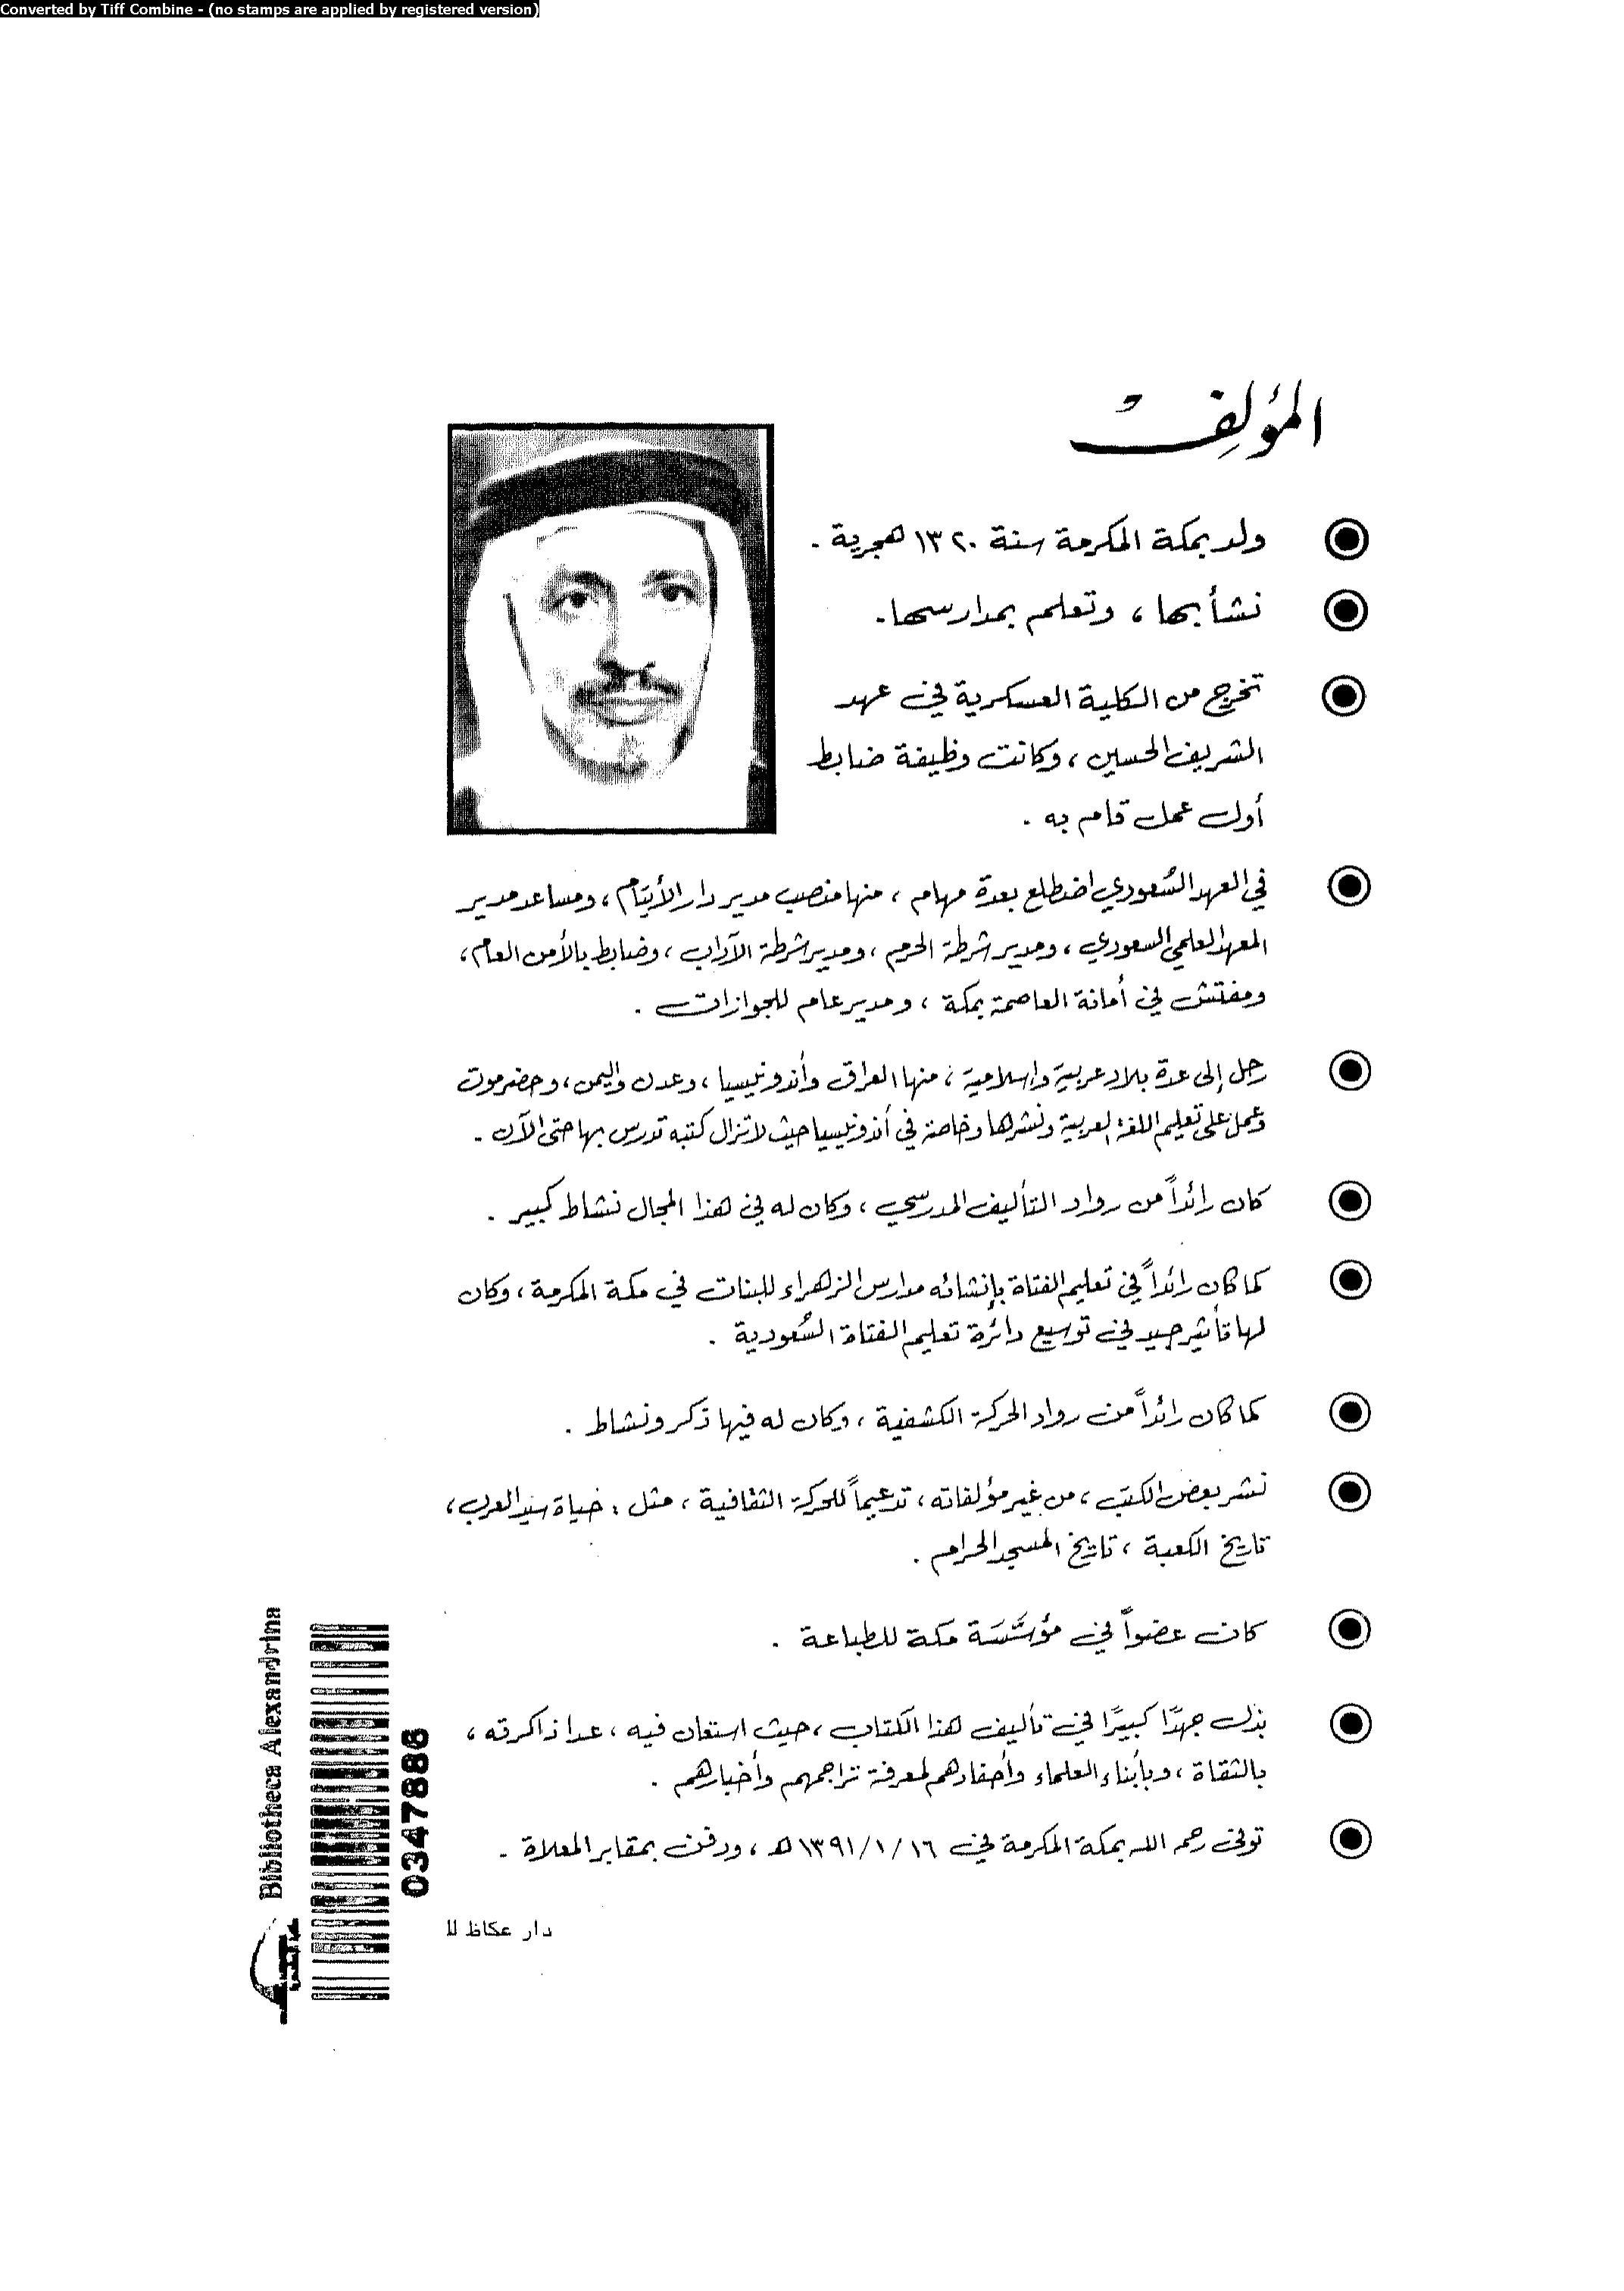 Converted by Tiff Combine - (no stamps are applied by registered version)
المؤلف
ولد بمكة المكرمة سنة ١٣٢٠ هجرية .
نشأ بها ، وتعلم بمدارسها .
تخرج من الكلية العسكرية في عهد
الشريف الحسين ، وكانت وظيفة ضابط
أول عمل قام به .
في العهد السُعودي اضطلع بعدة مهام ، منها منصب مدير دار الأيتام ، ومساعد مدير
المعهد العلمي السعودي ، ومدير شرطة الحرم ، ومدير شرطة الآداب ، وضابط بالأمن العام ،
ومفتش في أمانة العاصمة بمكة ، ومدير عام للجوازات .
رحل إلى عدة بلاد عربية وإسلامية ، منها العراق وأندونيسيا ، وعدن واليمن ، وحضرموت
وعمل على تعليم اللغة العربية ونشرها وخاصة في أندونيسيا حيث لا تزال كتبه تدرس بها حتى الآن .
كان رائداً من رواد التأليف المدرسي ، وكان له في هذا المجال نشاط كبير .
كما كان رائداً في تعليم الفتاة بإنشائه مدارس الزهراء للبنات في مكة المكرمة ، وكان
لها تأثير جيد في توسيع دائرة تعليم الفتاة السُعودية .
كما كان رائداً من رواد الحركة الكشفية ، وكان له فيها ذكر ونشاط .
نشر بعض الكتب ، من غير مؤلفاته ، تدعيماً للحركة الثقافية ، مثل : حياة سيد العرب ،
تاريخ الكعبة ، تاريخ المسجد الحرام .
كان عضواً في مؤسَّسَة مكة للطباعة .
بذل جهدًا كبيرًا في تأليف هذا الكتاب ، حيث استعان فيه ، عدا ذاكرته ،
بالثقاة ، وبأبناء العلماء وأحفادهم لمعرفة تراجمهم وأخبارهم .
توفى رحمه الله بمكة المكرمة في ١٦ / ١ / ١٣٩١ هـ ، ودفن بمقابر المعلاة .
دار عكاظ للـ
Bibliotheca Alexandrina
0347886